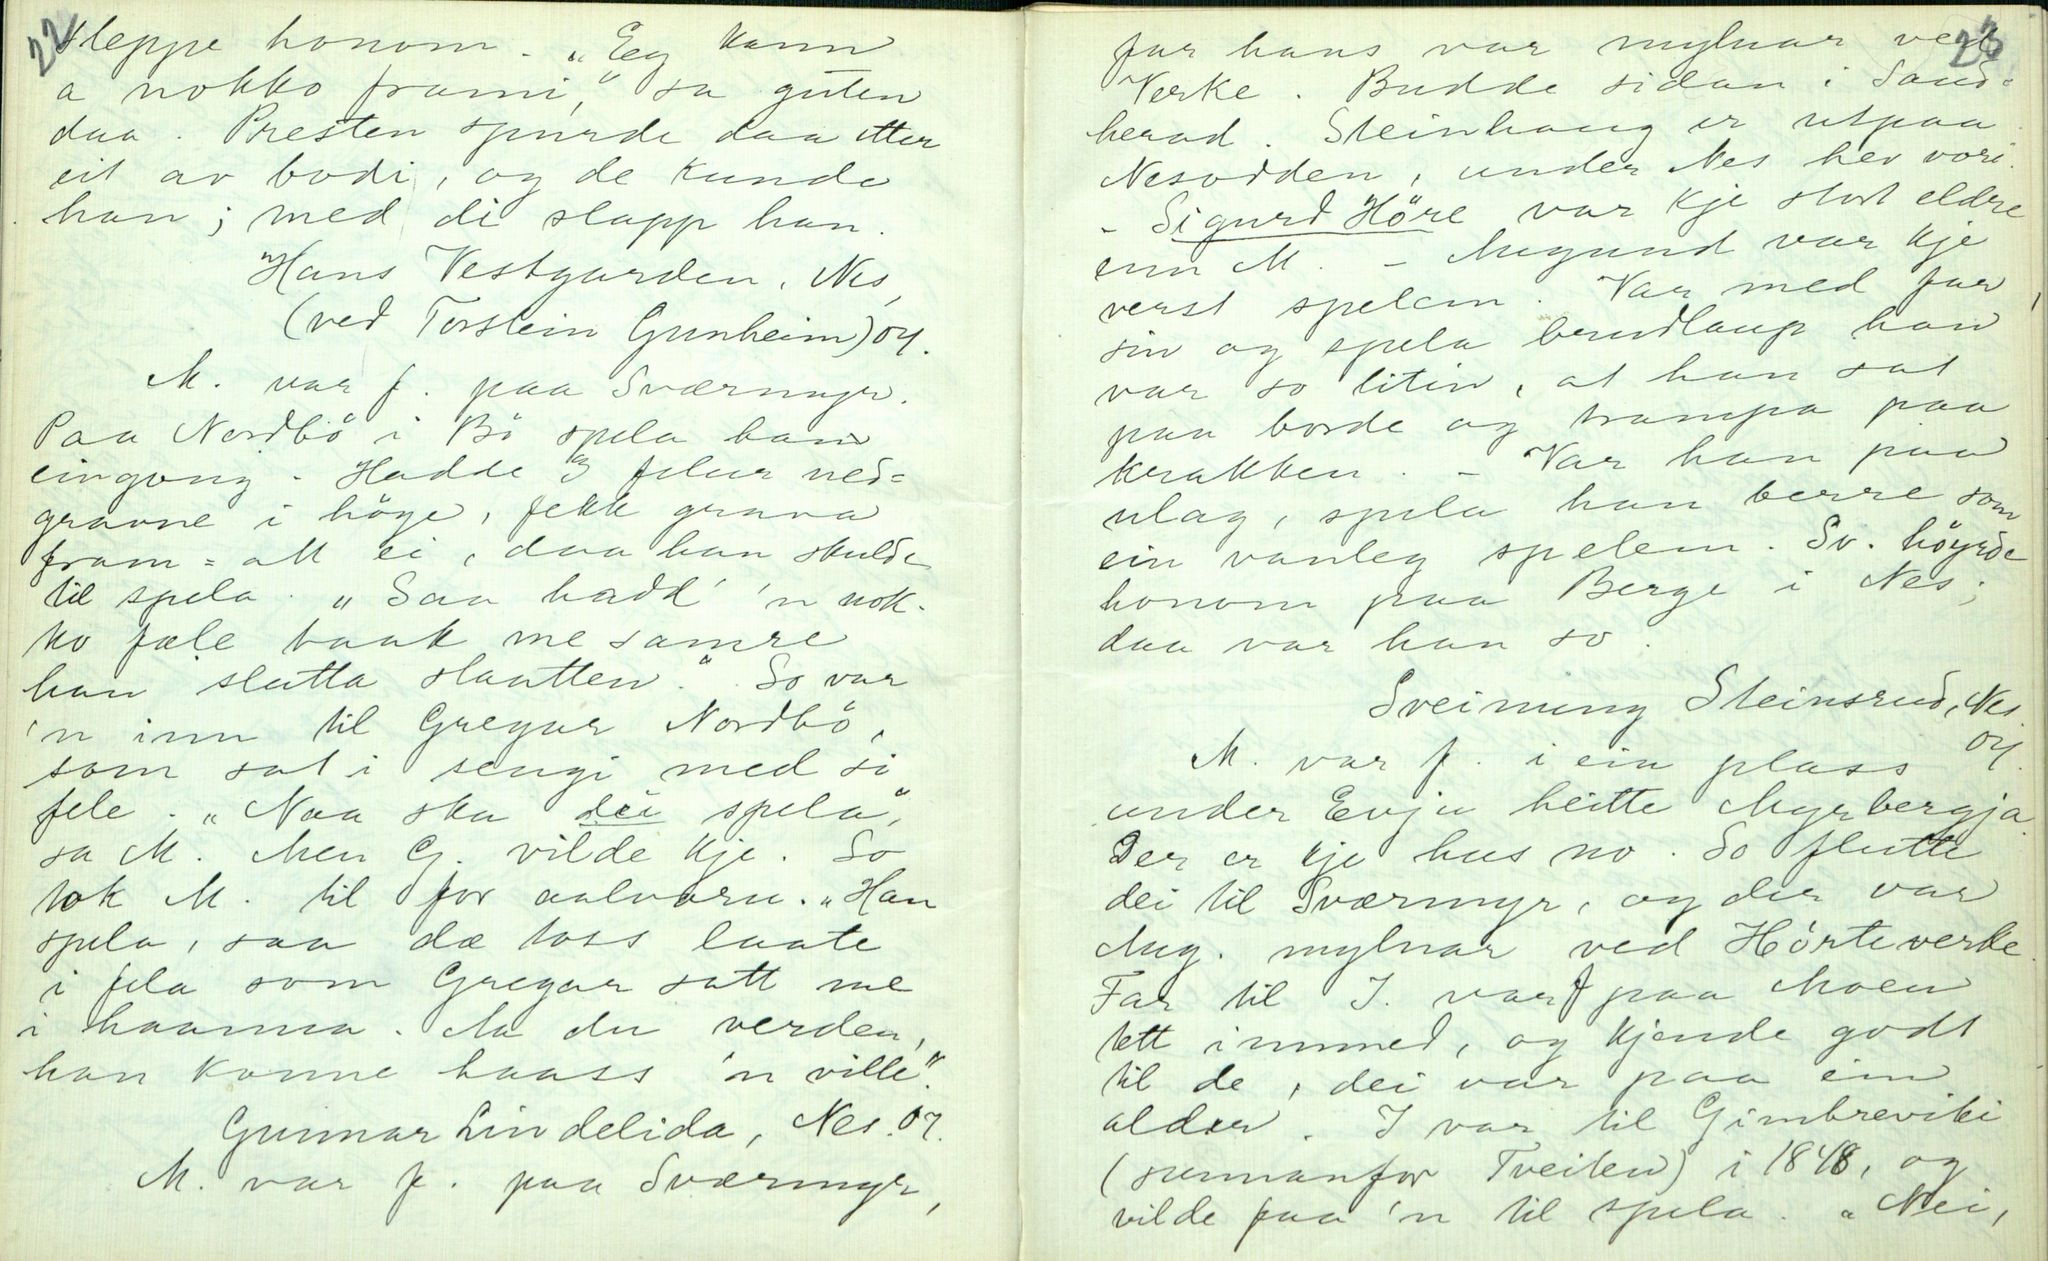 22
sleppe honom. "Eg kann
a nokko frami", sa guten
daa. Presten spurde daa etter
eit av bodi, og de kunde
han; med di slapp han.
Hans Vestgarden, Nes,
(ved Torstein Gunheim) 07.
M. var f. paa Sværmyr.
Paa Nordbö i Bö spela han
eingong. Hadde 3 felur ned=
gravne i höge, fekk grava
fram = att ei, daa han skulde
til spela. "Saa hadd' 'n nok-
ko fæle baak me samre
han slutta slaatten." So var
'n inn til Gregar Nordbö,
som sat i sengi med si
fele. "Naa ska dei spela",
sa M. Men G. vilde kje. So
tok M. til for aalvoru. "Han
spela, saa dæ toss laate
i fela som Gregar satt me
i haanna. Aa du verden,
han konne haass 'n ville".
Gunnar Lindelida, Nes. 07.
M. var f. paa Sværmyr,
23
far hans var mylnar ved
Verke. Budde sidan i Saud=
herad. Steinhaug er utpaa
Nesodden, under Nes hev vori.
- Sigurd Höre var kje stort eldre
enn M. - Augund var kje
verst spelem. Var med far
sin og spela brudlaup han
var so litin, at han sat
paa borde og trampa paa
krakken. - Var han paa
ulag, spela han berre som
ein vanleg spelem. Sv. höyrde
honom paa Berge i Nes;
daa var han so.
Sveinung Steinsrud, Nes
07.
M. var f. i ein plass
under Evju heitte Myrbergja.
Der er kje hus no. So flutte
dei til Sværmyr, og der var
Aug. mylnar ved Hörteverke.
Far til J. var f paa Moen
tett innmed, og kjende godt
til de, dei var paa ein
alder. J var til Gimbreviki
(sunnanfor Tveiten) i 1848, og
vilde faa 'n til spela. "Nei,